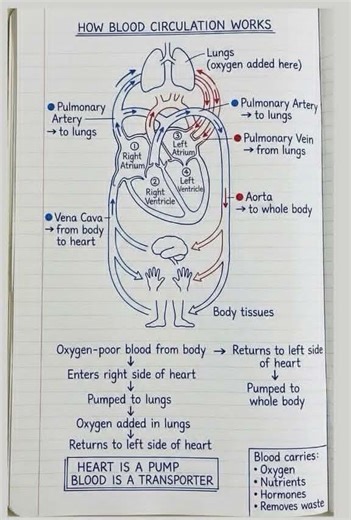 HOW BLOOD CIRCULATION WORKS
Lungs
(oxygen added here)
Pulmonary
Artery
→ to lungs
Pulmonary Artery
→ to lungs
Pulmonary Vein
→ from lungs
① Right
Atrium
② Right
Ventricle
③ Left
Atrium
④ Left
Ventricle
Aorta
→ to whole body
Vena Cava
→ from body
to heart
Body tissues
Oxygen-poor blood from body → Returns to left side
of heart
↓
Enters right side of heart
↓
Pumped to
whole body
↓
Pumped to lungs
↓
Oxygen added in lungs
↓
Returns to left side of heart
HEART IS A PUMP
BLOOD IS A TRANSPORTER
Blood carries:
• Oxygen
• Nutrients
• Hormones
• Removes waste